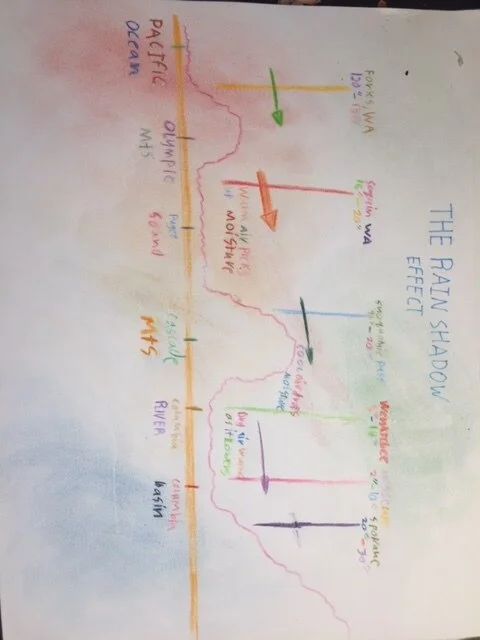 THE RAIN SHADOW
EFFECT
FORKS, WA
120"
Sequim WA
16" - 20"
pass
Wenatchee
spokane
Warm air PICKS
up MOISTURE
cool air drops
moisture
Dry air
as it lowers
PACIFIC
Ocean
OLYMPIC
Mts
Puget
Sound
Cascade
Mts
columbia
RIVER
columbia
basin